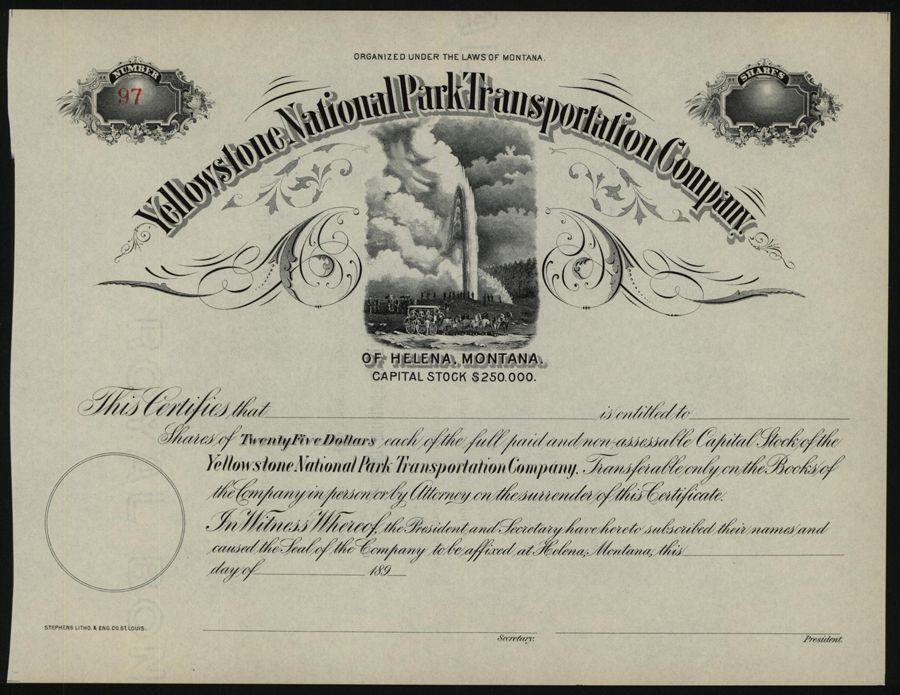 ORGANIZED UNDER THE LAWS OF MONTANA.
NUMBER
97
SHARES
Yellowstone National Park Transportation Company
OF HELENA, MONTANA.
CAPITAL STOCK $250.000.
This Certifies that is entitled to
Shares of Twenty Five Dollars each of the full paid and non-assessable Capital Stock of the
Yellowstone National Park Transportation Company. Transferable only on the Books of
the Company in person or by Attorney on the surrender of this Certificate.
In Witness Whereof, the President and Secretary have hereto subscribed their names and
caused the Seal of the Company to be affixed at Helena, Montana, this
day of 189
STEPHENS LITHO. & ENG. CO. ST. LOUIS.
Secretary.
President.